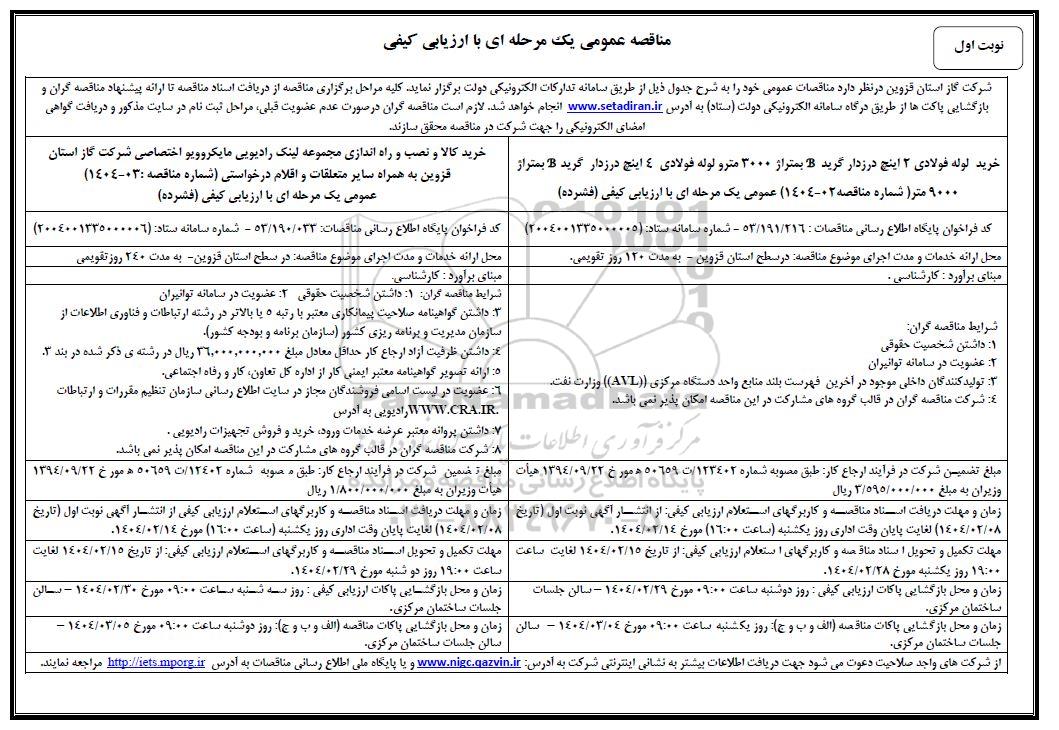 مناقصه عمومی یک مرحله ای با ارزیابی کیفی
نوبت اول
شرکت گاز استان قزوین درنظر دارد مناقصات عمومی خود را به شرح جدول ذیل از طریق سامانه تدارکات الکترونیکی دولت برگزار نماید. کلیه مراحل برگزاری مناقصه از دریافت اسناد مناقصه تا ارائه پیشنهاد مناقصه گران و
بازگشایی پاکت ها از طریق درگاه سامانه الکترونیکی دولت (ستاد) به آدرس www.setadiran.ir انجام خواهد شد. لازم است مناقصه گران درصورت عدم عضویت قبلی، مراحل ثبت نام در سایت مذکور و دریافت گواهی
امضای الکترونیکی را جهت شرکت در مناقصه محقق سازند.
خرید لوله فولادی ۲ اینچ درزدار گرید B بمتراژ ۳۰۰۰ مترو لوله فولادی ۴ اینچ درزدار گرید B بمتراژ
۹۰۰۰ متر( شماره مناقصه۰۲-۱۴۰۴) عمومی یک مرحله ای با ارزیابی کیفی (فشرده)
کد فراخوان پایگاه اطلاع رسانی مناقصات : ۵۳/۱۹۱/۲۱۶ - شماره سامانه ستاد: (۲۰۰۴۰۰۱۳۳۵۰۰۰۰۰۵)
محل ارائه خدمات و مدت اجرای موضوع مناقصه: درسطح استان قزوین - به مدت ۱۲۰ روز تقویمی.
مبنای برآورد : کارشناسی .
شرایط مناقصه گران:
۱: داشتن شخصیت حقوقی
۲: عضویت در سامانه توانیران
۳: تولیدکنندگان داخلی موجود در آخرین فهرست بلند منابع واحد دستگاه مرکزی ((AVL)) وزارت نفت.
۴: شرکت مناقصه گران در قالب گروه های مشارکت در این مناقصه امکان پذیر نمی باشد.
مبلغ تضمین شرکت در فرآیند ارجاع کار: طبق مصوبه شماره ۱۲۳۴۰۲/ت ۵۰۶۵۹ ه مورخ ۱۳۹۴/۰۹/۲۲ هیأت
وزیران به مبلغ ۳/۵۹۵/۰۰۰/۰۰۰ ریال
زمان و مهلت دریافت اسناد مناقصه و کاربرگهای استعلام ارزیابی کیفی: از انتشار آگهی نوبت اول (تاریخ
۱۴۰۴/۰۲/۰۸) لغایت پایان وقت اداری روز یکشنبه (ساعت ۱۶:۰۰) مورخ ۱۴۰۴/۰۲/۱۴.
مهلت تکمیل و تحویل اسناد مناقصه و کاربرگهای استعلام ارزیابی کیفی: از تاریخ ۱۴۰۴/۰۲/۱۵ لغایت ساعت
۱۹:۰۰ روز یکشنبه مورخ ۱۴۰۴/۰۲/۲۸.
زمان و محل بازگشایی پاکات ارزیابی کیفی : روز دوشنبه ساعت ۰۹:۰۰ مورخ ۱۴۰۴/۰۲/۲۹ – سالن جلسات
ساختمان مرکزی.
زمان و محل بازگشایی پاکات مناقصه (الف و ب و ج): روز یکشنبه ساعت ۰۹:۰۰ مورخ ۱۴۰۴/۰۳/۰۴ – سالن
جلسات ساختمان مرکزی.
خرید کالا و نصب و راه اندازی مجموعه لینک رادیویی مایکروویو اختصاصی شرکت گاز استان
قزوین به همراه سایر متعلقات و اقلام درخواستی (شماره مناقصه :۰۳-۱۴۰۴)
عمومی یک مرحله ای با ارزیابی کیفی (فشرده)
کد فراخوان پایگاه اطلاع رسانی مناقصات: ۵۳/۱۹۰/۰۳۳ - شماره سامانه ستاد: (۲۰۰۴۰۰۱۳۳۵۰۰۰۰۰۶)
محل ارائه خدمات و مدت اجرای موضوع مناقصه: در سطح استان قزوین- به مدت ۲۴۰ روزتقویمی
مبنای برآورد : کارشناسی.
شرایط مناقصه گران: ۱: داشتن شخصیت حقوقی ۲: عضویت در سامانه توانیران
۳: داشتن گواهینامه صلاحیت پیمانکاری معتبر با رتبه ۵ یا بالاتر در رشته ارتباطات و فناوری اطلاعات از
سازمان مدیریت و برنامه ریزی کشور (سازمان برنامه و بودجه کشور).
۴: داشتن ظرفیت آزاد ارجاع کار حداقل معادل مبلغ ۳۶,۰۰۰,۰۰۰,۰۰۰ ریال در رشته ی ذکر شده در بند ۳.
۵: ارائه تصویر گواهینامه معتبر ایمنی کار از اداره کل تعاون، کار و رفاه اجتماعی.
۶: عضویت در لیست اسامی فروشندگان مجاز در سایت اطلاع رسانی سازمان تنظیم مقررات و ارتباطات
رادیویی به آدرس WWW.CRA.IR.
۷: داشتن پروانه معتبر عرضه خدمات ورود، خرید و فروش تجهیزات رادیویی .
۸: شرکت مناقصه گران در قالب گروه های مشارکت در این مناقصه امکان پذیر نمی باشد.
مبلغ تضمین شرکت در فرآیند ارجاع کار: طبق مصوبه شماره ۱۲۴۰۲/ت ۵۰۶۵۹ ه مورخ ۱۳۹۴/۰۹/۲۲
هیأت وزیران به مبلغ ۱/۸۰۰/۰۰۰/۰۰۰ ریال
زمان و مهلت دریافت اسناد مناقصه و کاربرگهای استعلام ارزیابی کیفی: از انتشار آگهی نوبت اول (تاریخ
۱۴۰۴/۰۲/۰۸) لغایت پایان وقت اداری روز یکشنبه (ساعت ۱۶:۰۰) مورخ ۱۴۰۴/۰۲/۱۴.
مهلت تکمیل و تحویل اسناد مناقصه و کاربرگهای استعلام ارزیابی کیفی: از تاریخ ۱۴۰۴/۰۲/۱۵ لغایت
ساعت ۱۹:۰۰ روز دو شنبه مورخ ۱۴۰۴/۰۲/۲۹.
زمان و محل بازگشایی پاکات ارزیابی کیفی : روز سه شنبه ساعت ۰۹:۰۰ مورخ ۱۴۰۴/۰۲/۳۰ – سالن
جلسات ساختمان مرکزی.
زمان و محل بازگشایی پاکات مناقصه (الف و ب و ج): روز دوشنبه ساعت ۰۹:۰۰ مورخ ۱۴۰۴/۰۳/۰۵ –
سالن جلسات ساختمان مرکزی.
از شرکت های واجد صلاحیت دعوت می شود جهت دریافت اطلاعات بیشتر به نشانی اینترنتی شرکت به آدرس: www.nigc.qazvin.ir و یا پایگاه ملی اطلاع رسانی مناقصات به آدرس http://iets.mporg.ir مراجعه نمایند.
ParsNamadData
پایگاه اطلاع رسانی مناقصه و مزایده